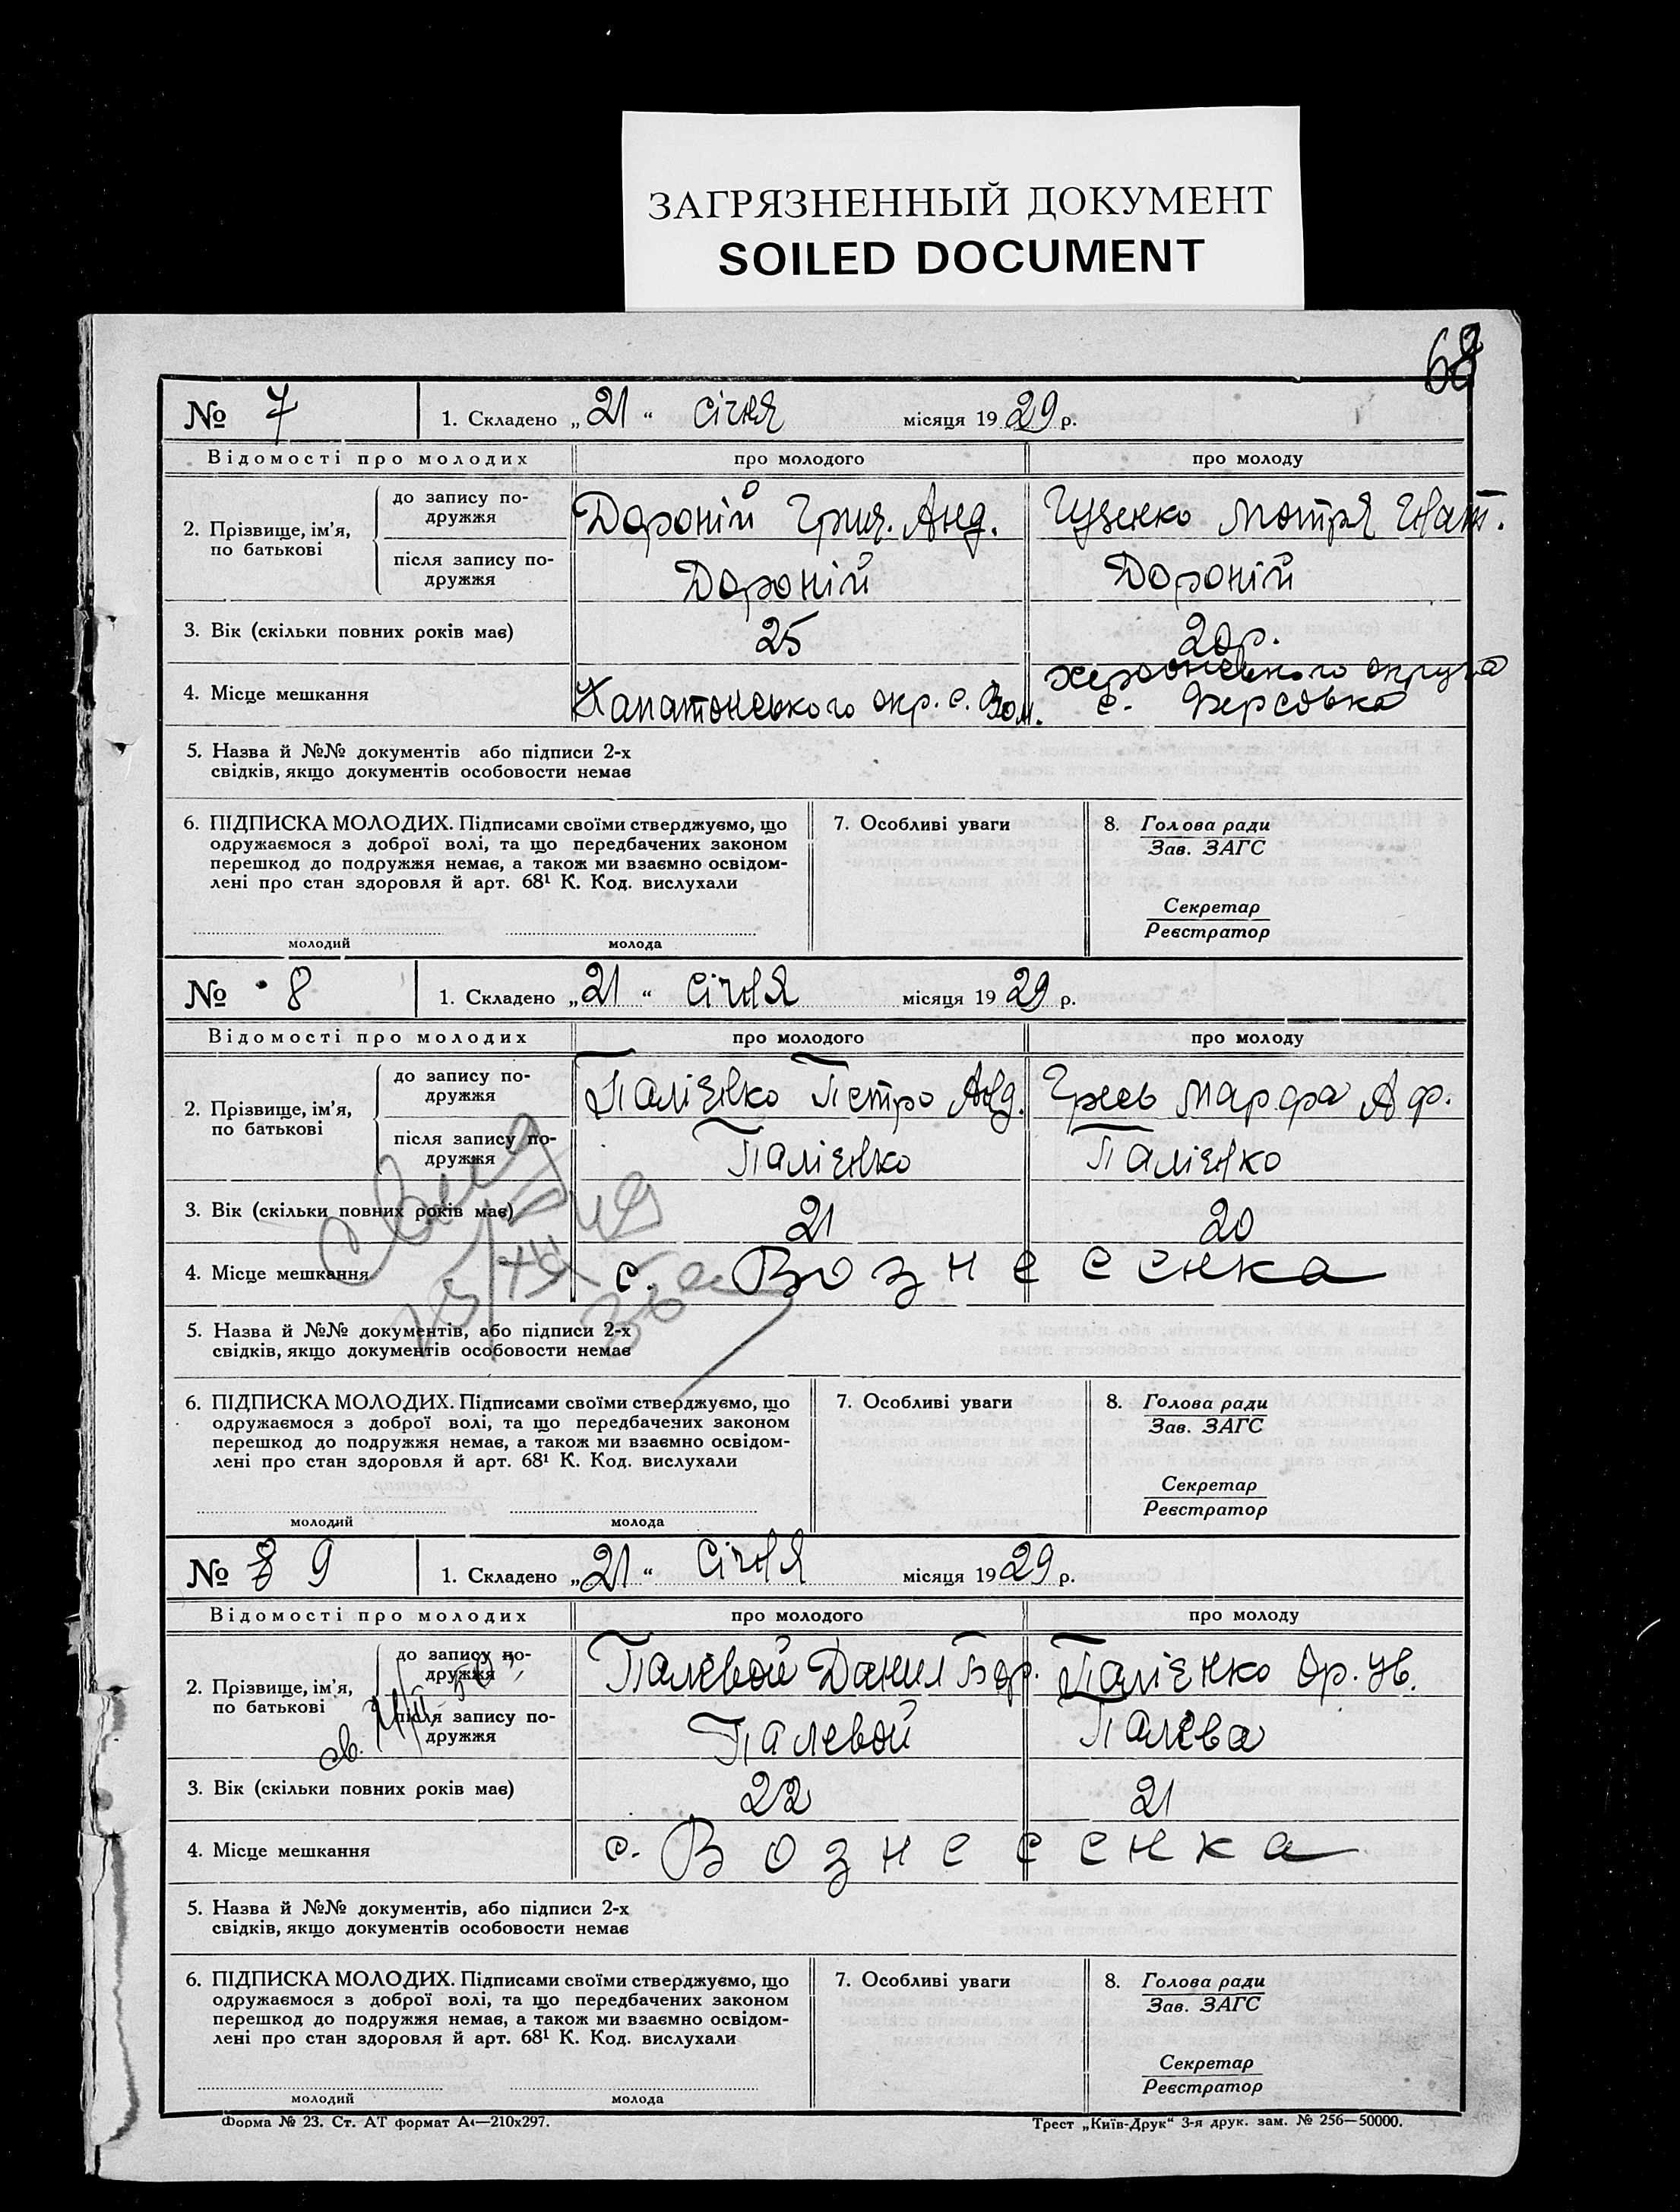 ЗАГРЯЗНЕННЫЙ ДОКУМЕНТ
SOILED DOCUMENT
№ 7
1. Складено „21“ січня місяця 1929 р.
Відомості про молодих
про молодого
про молоду
2. Прізвище, ім’я, по батькові
до запису по-
дружжя
Дороній Григ. Анд.
Гузенко Мотря Гнат.
після запису по-
дружжя
Дороній
Дороній
3. Вік (скільки повних років має)
25
20 р.
4. Місце мешкання
окр. с.
херсонського округа
с.
5. Назва й №№ документів або підписи 2-х
свідків, якщо документів особовости немає
6. ПІДПИСКА МОЛОДИХ. Підписами своїми стверджуємо, що
одружаємося з доброї волі, та що передбачених законом
перешкод до подружжя немає, а також ми взаємно освідом-
лені про стан здоровля й арт. 68¹ К. Код. вислухали
молодий
молода
7. Особливі уваги
8. Голова ради
Зав. ЗАГС
Секретар
Реєстратор
№ 8
1. Складено „21“ січня місяця 1929 р.
Відомості про молодих
про молодого
про молоду
2. Прізвище, ім’я,
по батькові
до запису по-
дружжя
Палієнко Петро Анд.
Гресь Марфа Аф.
після запису по-
дружжя
Палієнко
Палієнко
3. Вік (скільки повних років має)
21
20
4. Місце мешкання
с. Вознесенка
5. Назва й №№ документів, або підписи 2-х
свідків, якщо документів особовости немає
6. ПІДПИСКА МОЛОДИХ. Підписами своїми стверджуємо, що
одружаємося з доброї волі, та що передбачених законом
перешкод до подружжя немає, а також ми взаємно освідом-
лені про стан здоровля й арт. 68¹ К. Код. вислухали
молодий
молода
7. Особливі уваги
8. Голова ради
Зав. ЗАГС
Секретар
Реєстратор
№ 9
1. Складено „21“ січня місяця 1929 р.
Відомості про молодих
про молодого
про молоду
2. Прізвище, ім’я,
по батькові
до запису по-
дружжя
Палевой Данил
Палієнко Ів.
після запису по-
дружжя
Палевой
Палева
3. Вік (скільки повних років має)
22
21
4. Місце мешкання
с. Вознесенка
5. Назва й №№ документів, або підписи 2-х
свідків, якщо документів особовости немає
6. ПІДПИСКА МОЛОДИХ. Підписами своїми стверджуємо, що
одружаємося з доброї волі, та що передбачених законом
перешкод до подружжя немає, а також ми взаємно освідом-
лені про стан здоровля й арт. 68¹ К. Код. вислухали
молодий
молода
7. Особливі уваги
8. Голова ради
Зав. ЗАГС
Секретар
Реєстратор
Форма № 23. Ст. АТ формат А4—210х297.
Трест „Київ-Друк“ 3-я друк. зам. № 256—50000.